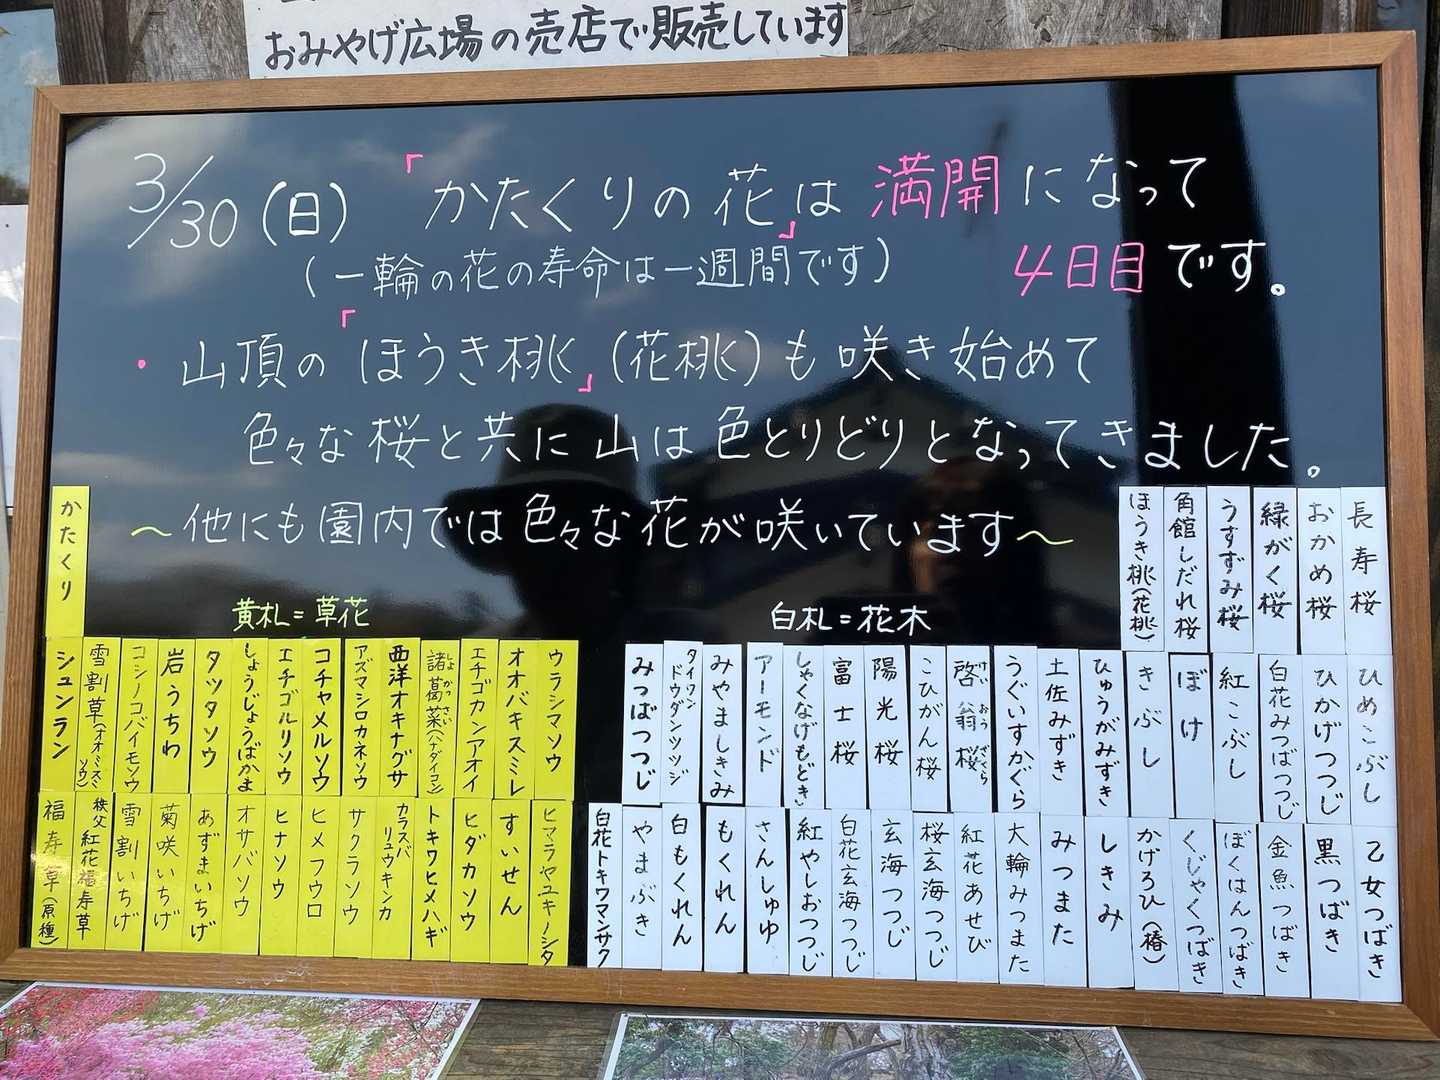 おみやげ広場の売店で販売しています
3/30(日)「かたくりの花」は満開になって
(一輪の花の寿命は一週間です) 4日目です。
・山頂の「ほうき桃」(花桃)も咲き始めて
色々な桜と共に山は色とりどりとなってきました。
〜他にも園内では色々な花が咲いています〜
黄札=草花
白札=花木
かたくり
ウラシマソウ
オオバキスミレ
エチゴカンアオイ
諸葛菜(ハナダイコン)
しょかつさい
西洋オキナグサ
アズマシロカネソウ
コチャメルソウ
エチゴルリソウ
しょうじょうばかま
タツタソウ
岩うちわ
コシノコバイモソウ
雪割草(オオミスミソウ)
シュンラン
ヒマラヤユキノシタ
すいせん
ヒダカソウ
トキワヒメハギ
カラスバリュウキンカ
サクラソウ
ヒメフウロ
ヒナソウ
オサバソウ
あずまいちげ
菊咲いちげ
雪割いちげ
秩父紅花福寿草
福寿草(原種)
長寿桜
おかめ桜
緑がく桜
うすずみ桜
角館しだれ桜
ほうき桃(花桃)
ひめこぶし
ひかげつつじ
白花みつばつつじ
紅こぶし
ぼけ
きぶし
ひゅうがみずき
土佐みずき
うぐいすかぐら
啓翁桜
けいおうざくら
こひがん桜
陽光桜
富士桜
しゃくなげもどき
アーモンド
みやましきみ
タイワンドウダンツツジ
みつばつつじ
乙女つばき
黒つばき
金魚つばき
ぼくはんつばき
くじゃくつばき
かげろひ(椿)
しきみ
みつまた
大輪みつまた
紅花あせび
桜玄海つつじ
玄海つつじ
白花玄海つつじ
紅やしおつつじ
さんしゅゆ
もくれん
白もくれん
やまぶき
白花トキワマンサク